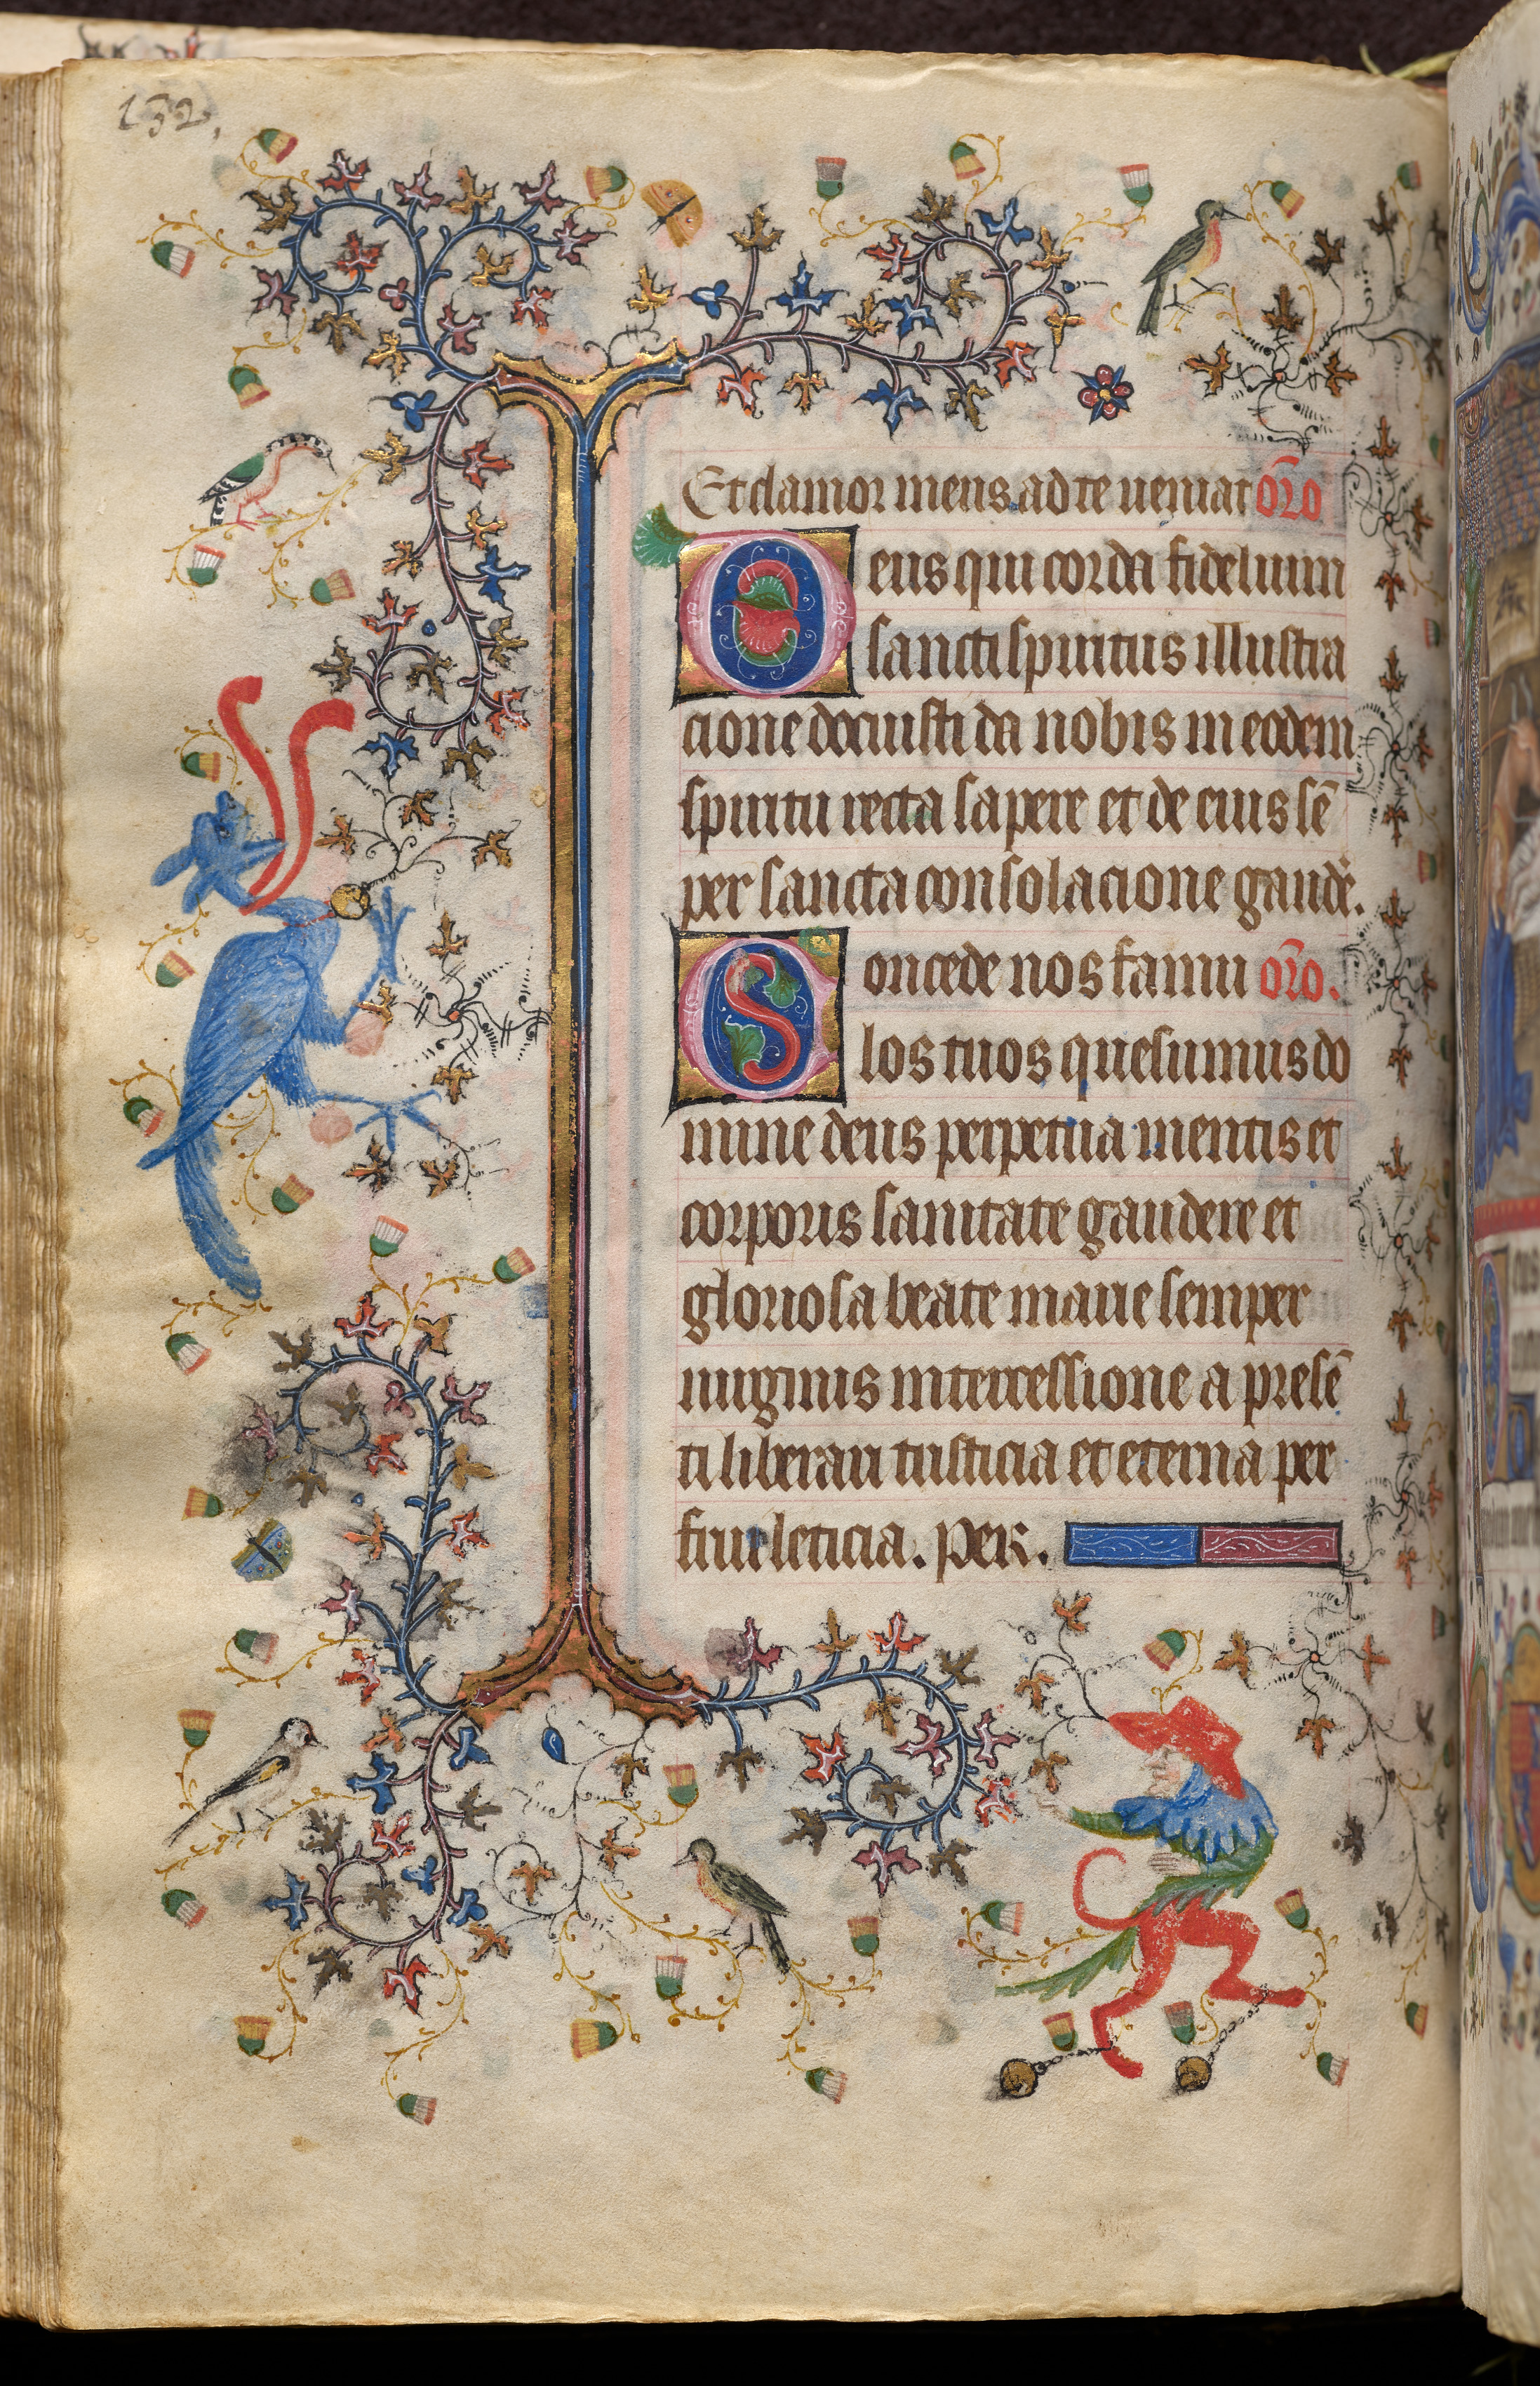 132,
Et clamor meus ad te ueniat oro
Deus qui corda fidelium
sancti spiritus illustra
cione docuisti da nobis in eodem
spiritu recta sapere et de eius sē
per sancta consolacione gaudē.
Concede nos famu oro.
los tuos quesumus do
mine deus perpetua mentis et
corporis sanitate gaudere et
gloriosa beate marie semper
uirginis intercessione a presē
ti liberari tristicia et eterna per
frui leticia. Per.